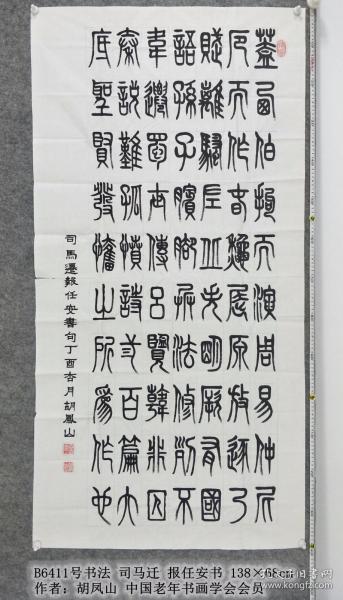 蓋西伯拘而演周易仲尼
厄而作春秋屈原放逐乃
賦離騷左丘失明厥有國
語孫子臏腳兵法修列不
韋遷蜀世傳呂覽韓非囚
秦說難孤憤詩三百篇大
底聖賢發憤之所爲作也
司馬遷報任安書句丁酉杏月胡鳳山
B6411号书法 司马迁 报任安书 138×68cm
作者：胡凤山 中国老年书画学会会员